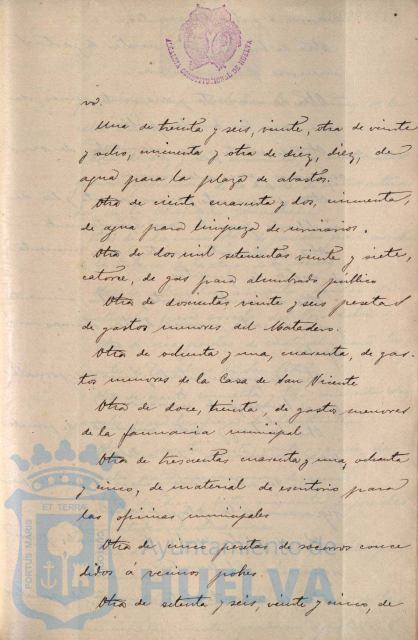 ALCALDIA CONSTITUCIONAL DE HUELVA
Una de treinta y seis, veinte, otra de veinte
y ocho, cincuenta y otra de diez, diez, de
agua para la plaza de abastos.
Otra de ciento cuarenta y dos, cincuenta,
de agua para limpieza de urinarios.
Otra de dos mil setecientas veinte y siete,
catorce, de gas para alumbrado público
Otra de doscientas veinte y seis pesetas
de gastos menores del Matadero.
Otra de ochenta y una, cuarenta, de gas-
tos menores de la Casa de San Vicente
Otra de doce, treinta, de gastos menores
de la farmacia municipal
Otra de trescientas cuarenta y una, ochenta
y cinco, de material de escritorio para
las oficinas municipales
Otra de cinco pesetas de socorros conce
didos á vecinos pobres.
Otra de setenta y seis, veinte y cinco, de
PORTUS MARIS
ET TERRA
Ayuntamiento de
HUELVA